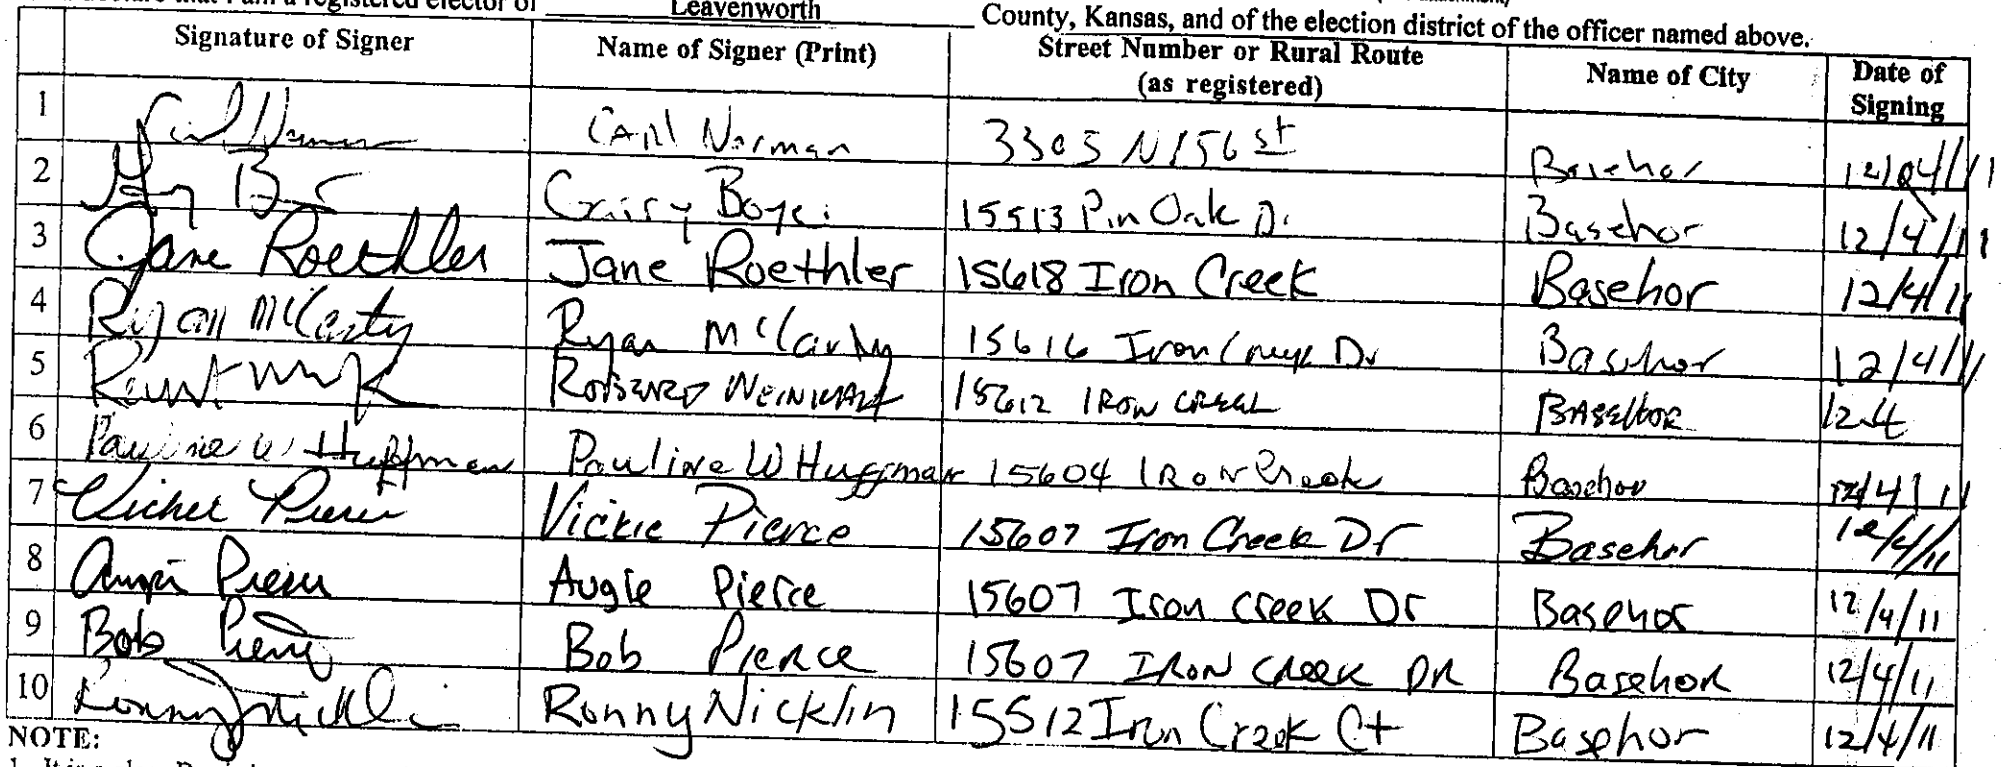 registered elector of Leavenworth County, Kansas, and of the election district of the officer named above.
Signature of Signer Name of Signer (Print) Street Number or Rural Route (as registered) Name of City Date of Signing
1 Carl Norman 3305 N 156 st Basehor 12/04/11
2 15513 Pin Oak Dr Basehor 12/4/11
3 Jane Roethler Jane Roethler 15618 Iron Creek Basehor 12/4/11
4 Ryan McCarty Ryan McCarty 15616 Iron Creek Dr Basehor 12/4/11
5 15612 IRON CREEK BASEHOR 12-4
6 Pauline W Huffman Pauline W Huffman 15604 IRON Creek Basehor 12/4/11
7 Vickie Pierce Vickie Pierce 15607 Iron Creek Dr Basehor 12/4/11
8 Augie Pierce 15607 Iron Creek Dr Basehor 12/4/11
9 Bob Pierce Bob Pierce 15607 IRON CREEK DR Basehor 12/4/11
10 Ronny Nicklin Ronny Nicklin 15512 Iron Creek Ct Basehor 12/4/11
NOTE: